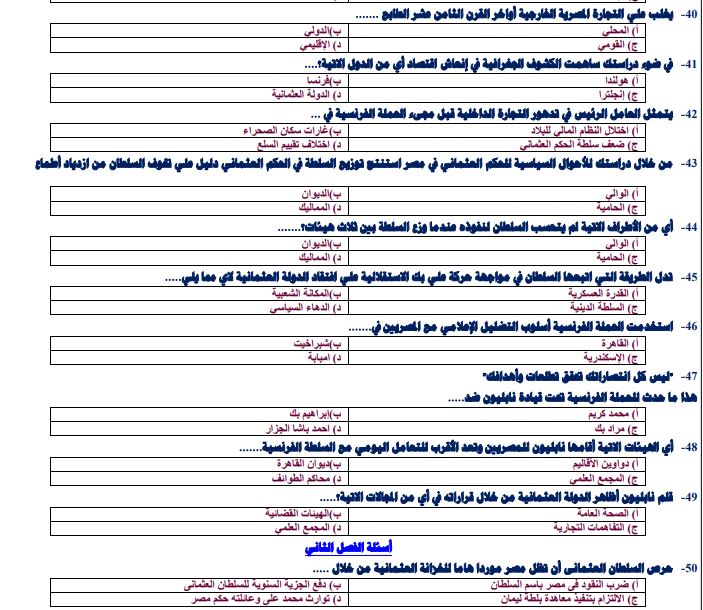 40- يغلب علي التجارة المصرية الخارجية أواخر القرن الثامن عشر الطابع .......
أ) المحلي ب)الدولي
ج) القومي د) الإقليمي
41- في ضوء دراستك ساهمت الكشوف الجغرافية في إنعاش اقتصاد أي من الدول الاتية؟....
أ) هولندا ب)فرنسا
ج) إنجلترا د) الدولة العثمانية
42- يتمثل العامل الرئيس في تدهور التجارة الداخلية قبل مجىء الحملة الفرنسية في ...
أ) اختلال النظام المالي للبلاد ب)غارات سكان الصحراء
ج) ضعف سلطة الحكم العثماني د) اختلاف تقييم السلع
43- من خلال دراستك للأحوال السياسية للحكم العثماني في مصر استنتج توزيع السلطة في الحكم العثماني دليل علي تخوف السلطان من ازدياد أطماع
أ) الوالي ب)الديوان
ج) الحامية د) المماليك
44- أي من الأطراف الاتية لم يتحسب السلطان لنفوذه عندما وزع السلطة بين ثلاث هيئات؟.......
أ) الوالي ب)الديوان
ج) الحامية د) المماليك
45- تدل الطريقة التي اتبعها السلطان في مواجهة حركة علي بك الاستقلالية علي افتقاد الدولة العثمانية لاي مما يلي.....
أ) القدرة العسكرية ب)المكانة الشعبية
ج) السلطة الدينية د) الدهاء السياسي
46- استخدمت الحملة الفرنسية أسلوب التضليل الإعلامي مع المصريين في.......
أ) القاهرة ب)شبراخيت
ج) الإسكندرية د) امبابة
47- "ليس كل انتصاراتك تحقق تطلعات وأهدافك"
هذا ما حدث للحملة الفرنسية تحت قيادة نابليون ضد.....
أ) محمد كريم ب)إبراهيم بك
ج) مراد بك د) احمد باشا الجزار
48- أي الهيئات الاتية أقامها نابليون للمصريين وتعد الأقرب للتعامل اليومي مع السلطة الفرنسية.......
أ) دواوين الأقاليم ب)ديوان القاهرة
ج) المجمع العلمي د) محاكم الطوائف
49- قلم نابليون أظافر الدولة العثمانية من خلال قراراته في أي من المجالات الاتية؟.....
أ) الصحة العامة ب)الهيئات القضائية
ج) التفاهمات التجارية د) المجمع العلمي
أسئلة الفصل الثاني
50- حرص السلطان العثمانى أن تظل مصر موردا هاما للخزانة العثمانية من خلال .....
أ) ضرب النقود فى مصر باسم السلطان ب) دفع الجزية السنوية للسلطان العثمانى
ج) الالتزام بتنفيذ معاهدة بلطة ليمان د) توارث محمد على وعائلته حكم مصر